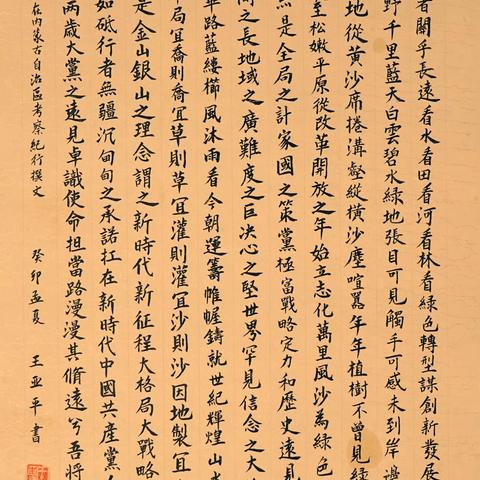 者關乎長遠看水看田看河看林看綠色轉型謀創新發展
野千里藍天白雲碧水綠地張目可見觸手可感未到岸邊
地從黃沙席捲溝壑縱橫沙塵喧囂年年植樹不曾見綠
至松嫩平原從改革開放之年始立志化萬里風沙為綠色
然是全局之計家國之策黨極富戰略定力和歷史遠見
間之長地域之廣難度之巨决心之堅世界罕見信念之大
路藍縷櫛風沐雨看今朝運籌帷幄鑄就世紀輝煌山
局宜喬則喬宜草則草宜灌則灌宜沙則沙因地製宜
是金山銀山之理念謂之新時代新征程大格局大戰略
如砥行者無疆沉甸甸之承諾扛在新時代中國共產黨人
兩歲大黨之遠見卓識使命担當路漫漫其脩遠兮吾將
在内蒙古自治區考察紀行撰文
癸卯孟夏 王亚平書